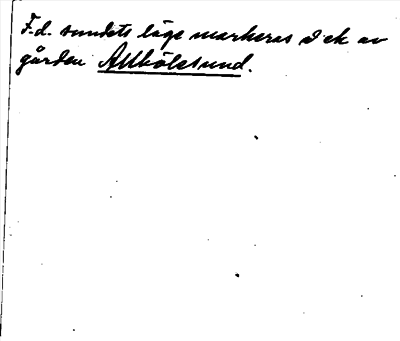 F.d. sundets läge markeras d ek av
gården Allhölsund.